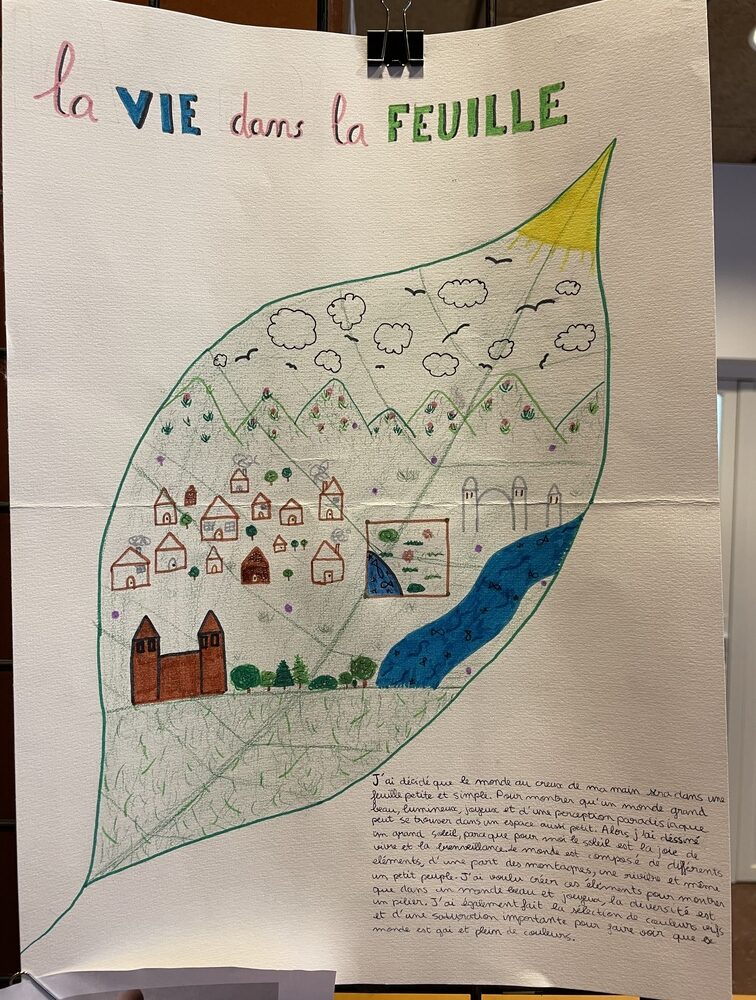 la VIE dans la FEUILLE
J'ai décidé que le monde au creux de ma main sera dans une
feuille petite et simple. Pour montrer qu'un monde grand
beau, lumineux, joyeux et d'une perception paradisiaque
peut se trouver dans un espace aussi petit. Alors j'ai dessiné
un grand soleil, parce que pour moi le soleil est la joie de
vivre et la bienveillance. Le monde est composé de différents
éléments, d'une part des montagnes, une rivière et même
un petit peuple. J'ai voulu créer ces éléments pour montrer
que dans un monde beau et joyeux, la diversité est
un pilier. J'ai également fait la sélection de couleurs vifs
et d'une saturation importante pour faire voir que ce
monde est gai et plein de couleurs.